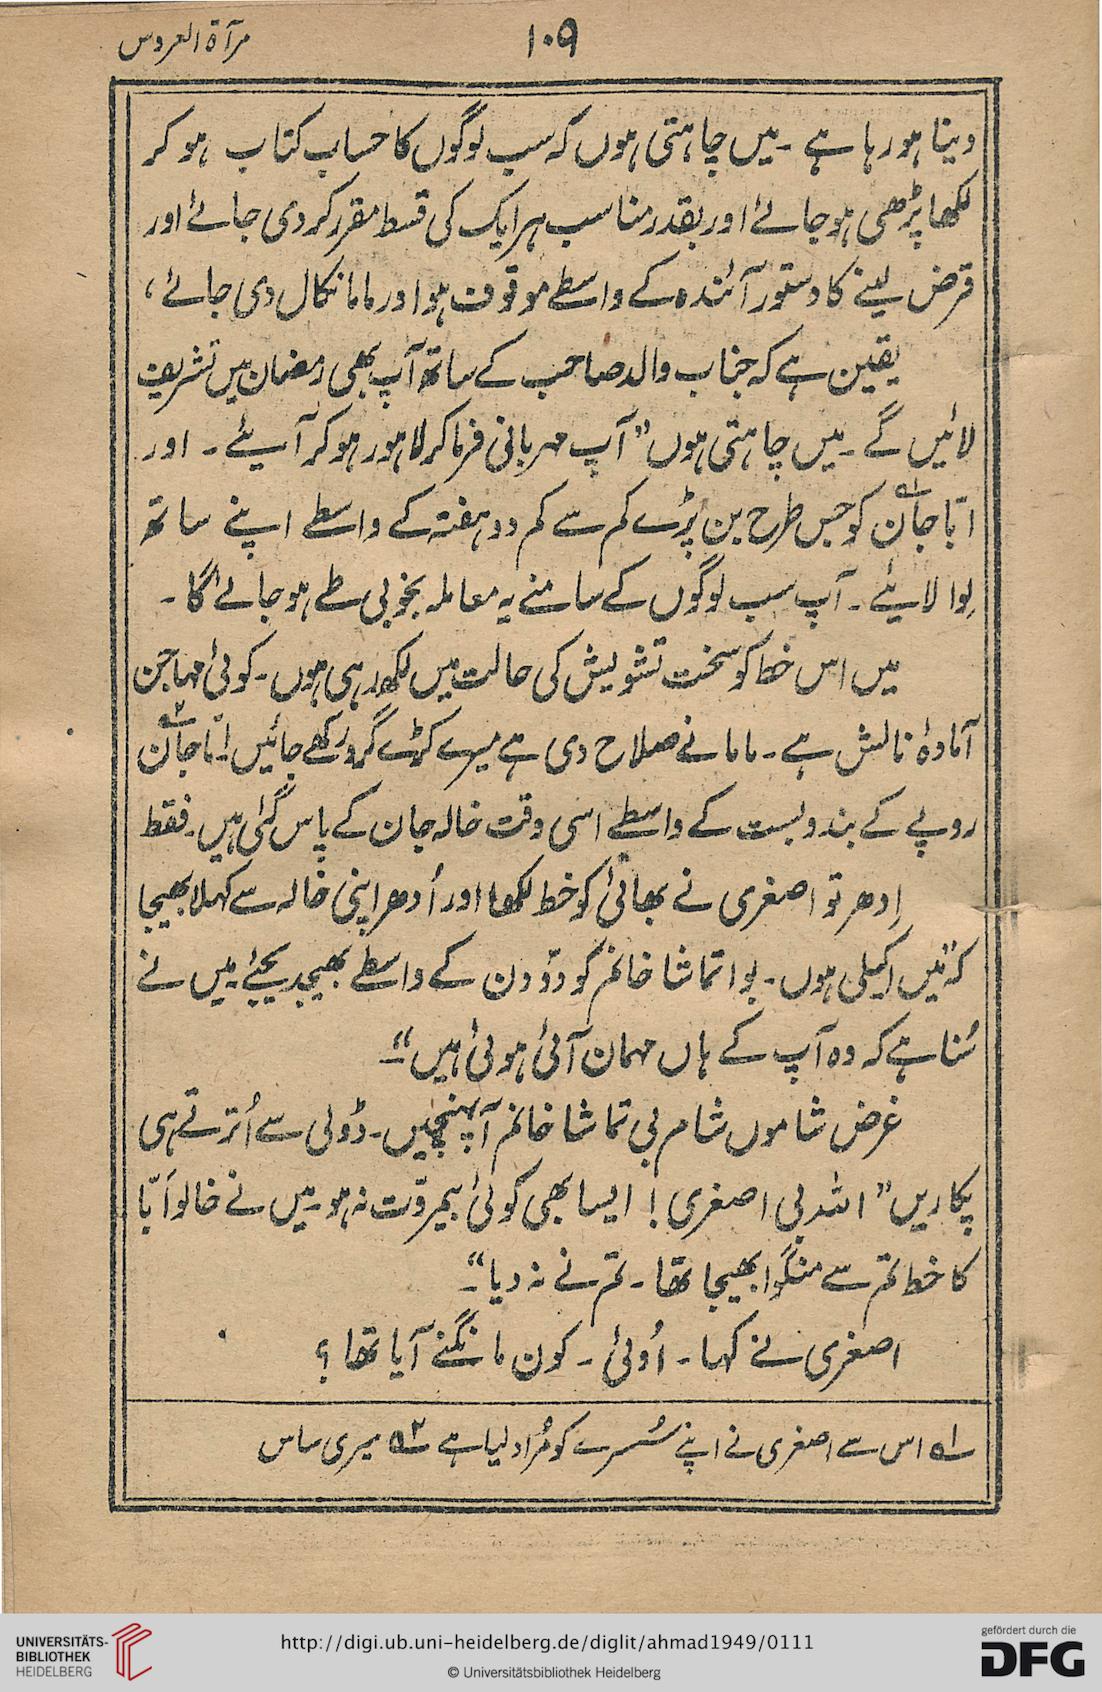 مرآة العروس
۱۰۹
دینا ہو رہا ہے ۔ میں چاہتی ہوں کہ سب لوگوں کا حساب کتاب ہو کر
لکھا پڑھی ہو جائے اور بقدر مناسب ہر ایک کی قسط مقرر کر دی جائے اور
قرض لینے کا دستور آئندہ کے واسطے موقوف ہو اور ماما نکال دی جائے ،
یقین ہے کہ جناب والد صاحب کے ساتھ آپ بھی رمضان میں تشریف
لائیں گے ۔ میں چاہتی ہوں ”آپ مہربانی فرما کر لاہور ہو کر آیئے ۔ اور
ابّا جان۱ کو جس طرح بن پڑے کم سے کم دو ہفتہ کے واسطے اپنے ساتھ
لِوا لایئے ۔ آپ سب لوگوں کے سامنے یہ معاملہ بخوبی طے ہو جائے گا ۔
میں اس خط کو سخت تشویش کی حالت میں لکھ رہی ہوں ۔ کوئی مہاجن
آمادۂ نالش ہے ۔ ماما نے صلاح دی ہے میرے کڑے گرو رکھے جائیں ۔ اماّں جان۲
روپے کے بندوبست کے واسطے اسی وقت خالہ جان کے پاس گئی ہیں ۔ فقط
اِدھر تو اصغری نے بھائی کو خط لکھا اور اُدھر اپنی خالہ سے کہلا بھیجا
کہ ”میں اکیلی ہوں ۔ بوا تماشا خانم کو دو دن کے واسطے بھیجدیجئے میں نے
سُنا ہے کہ وہ آپ کے ہاں مہمان آئی ہوئی ہیں“۔
غرض شاموں شام بی تماشا خانم آ پہنچیں ۔ ڈولی سے اُترتے ہی
پکاریں ”اللہ بی اصغری ! ایسا بھی کوئی بیمروّت نہ ہو ۔ میں نے خالو ابّا
کا خط تم سے منگوا بھیجا تھا ۔ تم نے نہ دیا“۔
اصغری نے کہا ۔ اُوئی ۔ کون مانگنے آیا تھا ؟
۱؎ اس سے اصغری نے اپنے سُسرے کو مُراد لیا ہے ۲؎ میری ساس
UNIVERSITÄTS-
BIBLIOTHEK
HEIDELBERG
http://digi.ub.uni-heidelberg.de/diglit/ahmad1949/0111
© Universitätsbibliothek Heidelberg
gefördert durch die
DFG